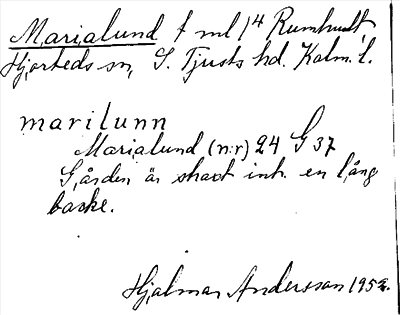 Marialund f ml 14 Rumhult
Hjorteds sn, S. Tjusts hd. Kalm. l.
marilunn
Marialund (n:r) 24 G 37
Gården är skart int. en lång
backe.
Hjalmar Andersson 1952.